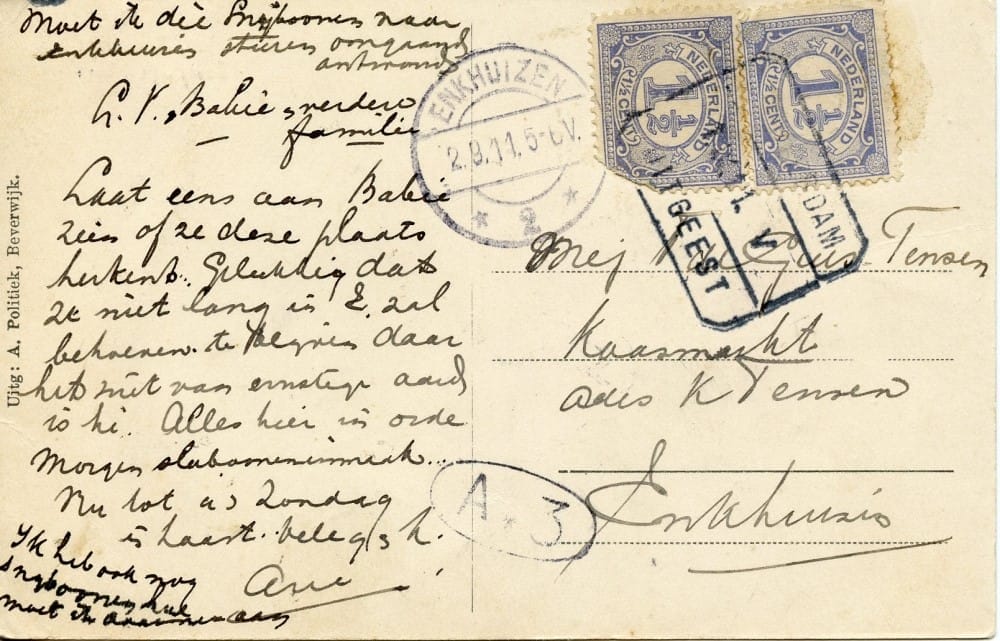 Moet ik die Snijboonen naar
Enkhuizen sturen omgaand
antwoord
G. V. Babie, verdere
familie
Laat eens aan Babie
zien of ze deze plaats
herkent. Gelukkig dat
ze niet lang in E. zal
behoeven te blijven daar
het niet van ernstige aard
is hè. Alles hier in orde
Morgen slaboonen inmaak..
Nu tot a.s Zondag
in haast
Ik heb ook nog
snijboonen
moet ik aan
Uitg: A. Politiek, Beverwijk.
ENKHUIZEN
2.8.11.5-6V.
2
NEDERLAND
1½
1½ CENT
NEDERLAND
1½
1½ CENT
DAM
V
UITGEEST
A. 3
Mej Tensen
Kaasmarkt
ades K Tensen
Enkhuizen